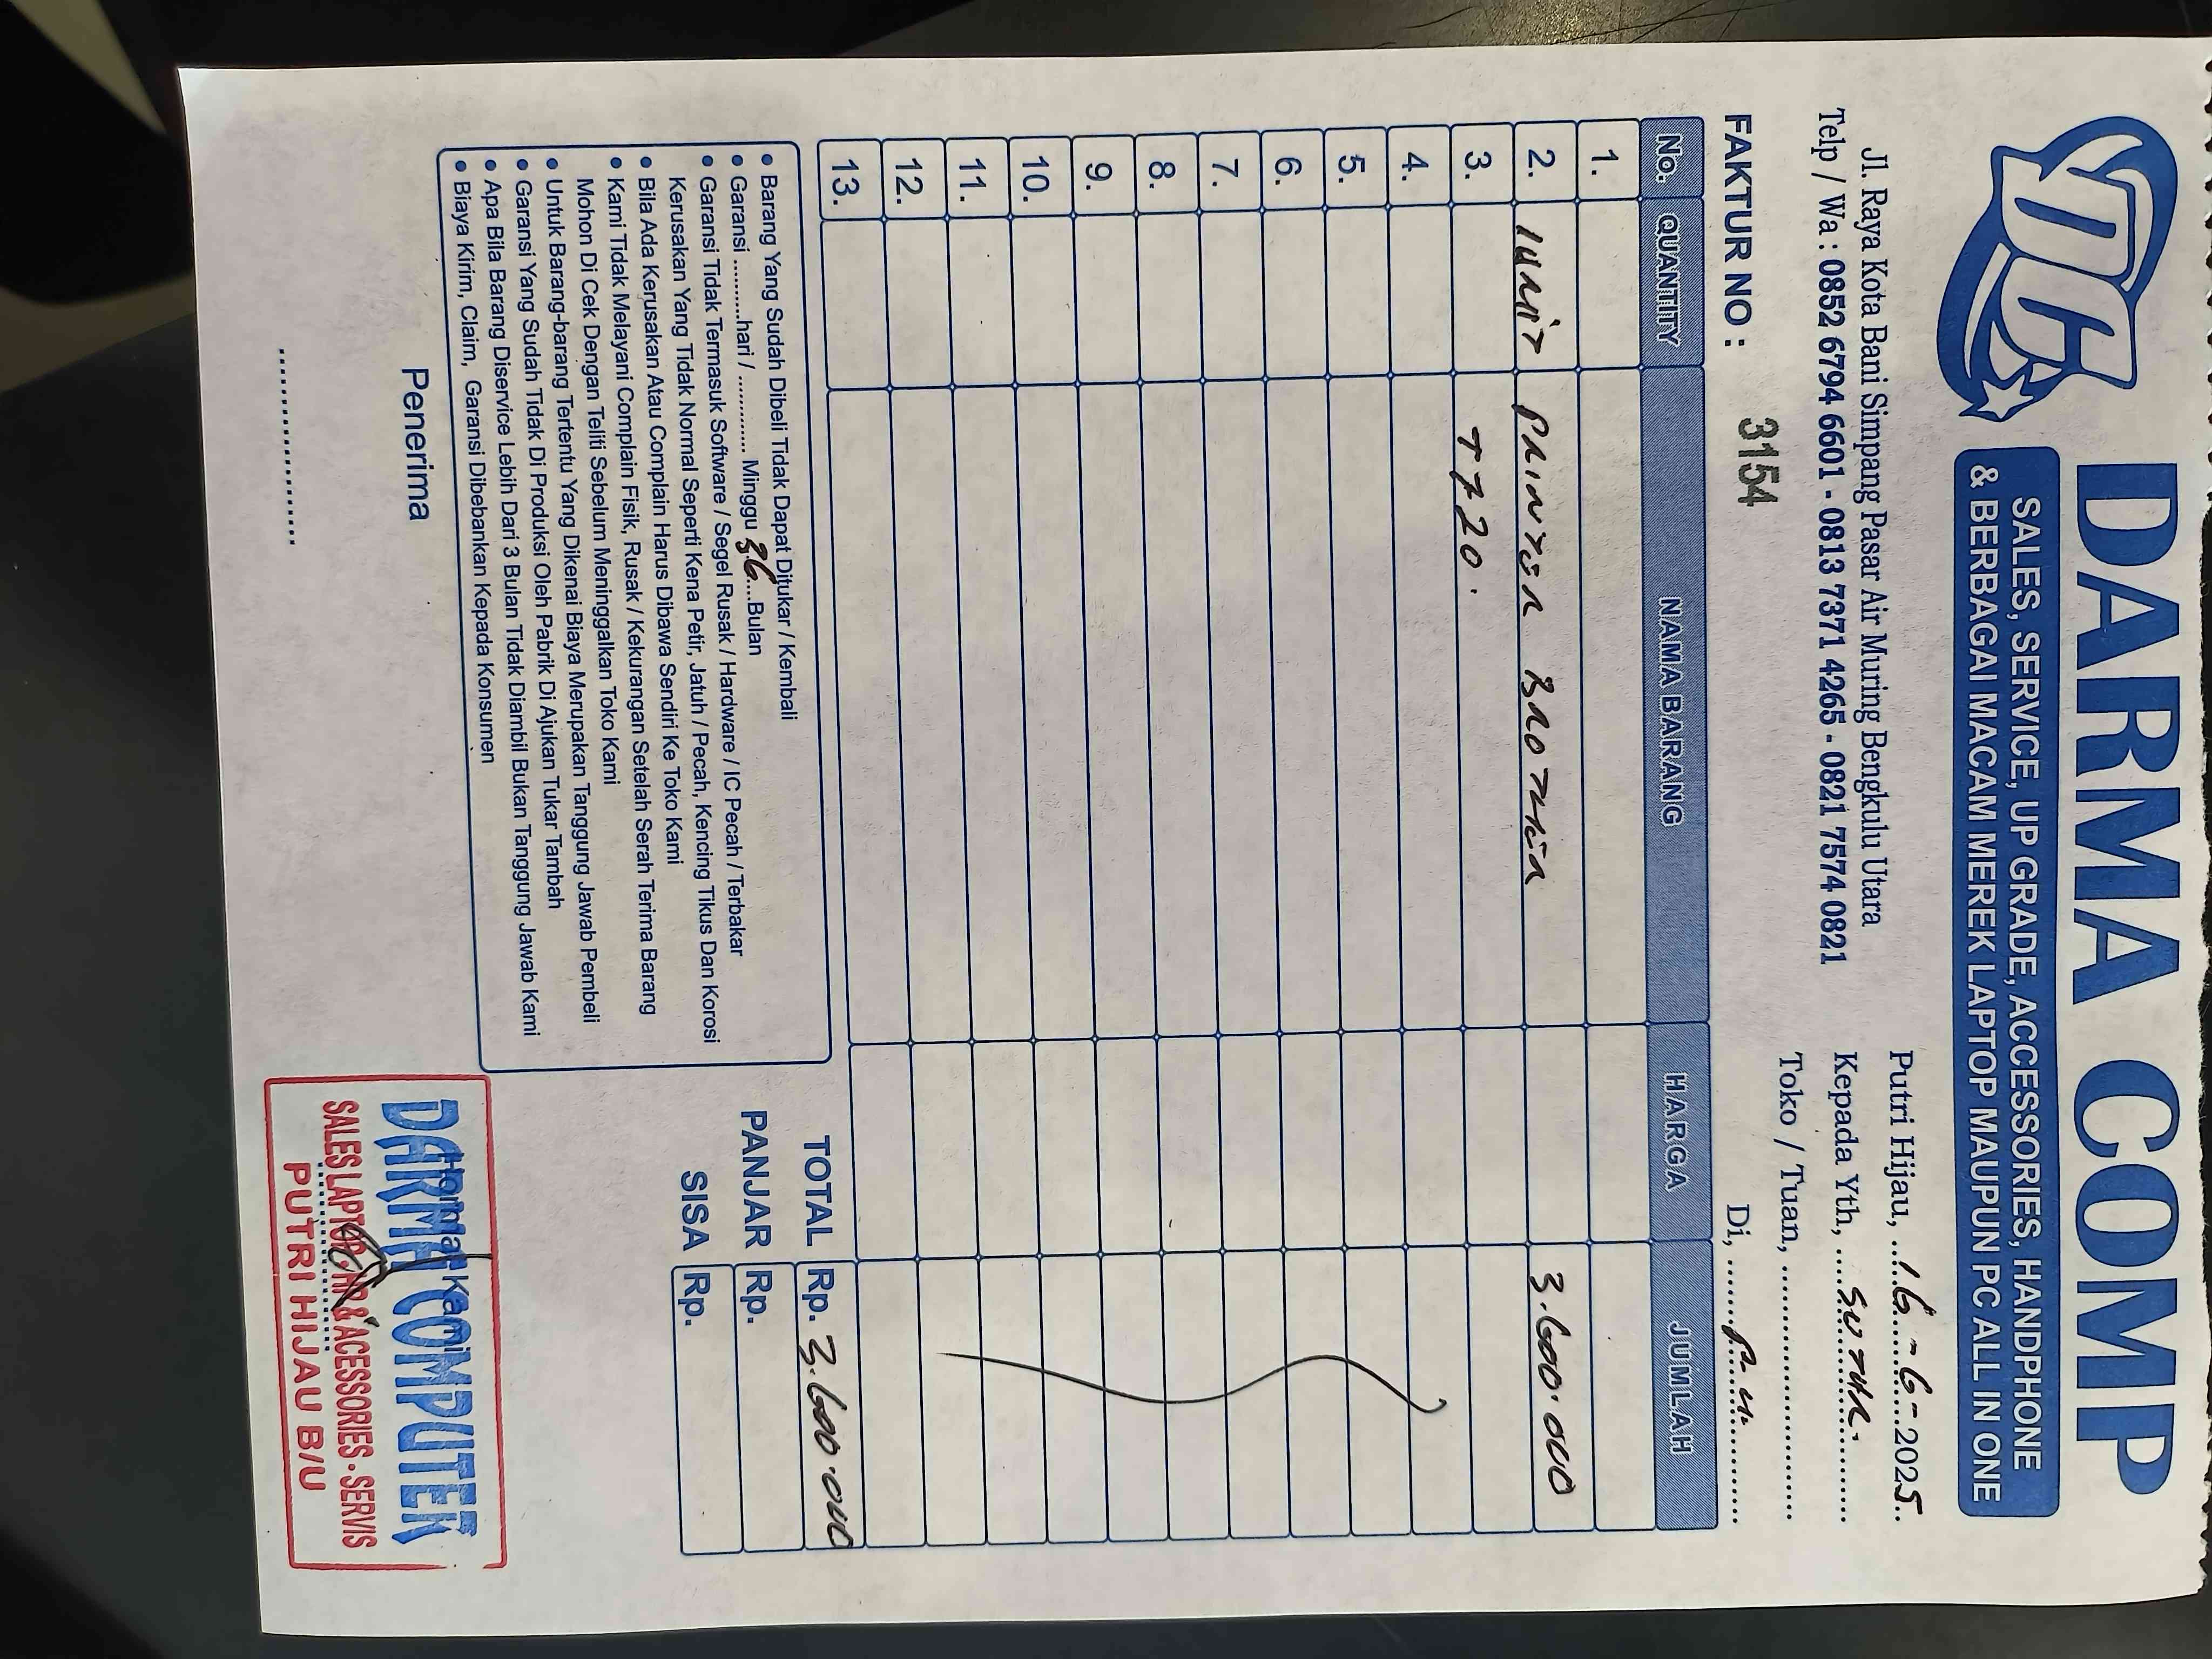 DC
DARMA COMP
SALES, SERVICE, UP GRADE, ACCESSORIES, HANDPHONE
& BERBAGAI MACAM MEREK LAPTOP MAUPUN PC ALL IN ONE
Jl. Raya Kota Bani Simpang Pasar Air Muring Bengkulu Utara
Telp / Wa : 0852 6794 6601 - 0813 7371 4265 - 0821 7574 0821
Putri Hijau, 16 - 6 - 2025
Kepada Yth,
Toko / Tuan,
Di, P.H.
FAKTUR NO : 3154
No. QUANTITY NAMA BARANG HARGA JUMLAH
1.
2. 1 unit Printer Brother 3.600.000
3. T720.
4.
5.
6.
7.
8.
9.
10.
11.
12.
13.
TOTAL Rp. 3.600.000
PANJAR Rp.
SISA Rp.
• Barang Yang Sudah Dibeli Tidak Dapat Ditukar / Kembali
• Garansi ..........hari / ............ Minggu 36...Bulan
• Garansi Tidak Termasuk Software / Segel Rusak / Hardware / IC Pecah / Terbakar
Kerusakan Yang Tidak Normal Seperti Kena Petir, Jatuh / Pecah, Kencing Tikus Dan Korosi
• Bila Ada Kerusakan Atau Complain Harus Dibawa Sendiri Ke Toko Kami
• Kami Tidak Melayani Complain Fisik, Rusak / Kekurangan Setelah Serah Terima Barang
Mohon Di Cek Dengan Teliti Sebelum Meninggalkan Toko Kami
• Untuk Barang-barang Tertentu Yang Dikenai Biaya Merupakan Tanggung Jawab Pembeli
• Garansi Yang Sudah Tidak Di Produksi Oleh Pabrik Di Ajukan Tukar Tambah
• Apa Bila Barang Diservice Lebih Dari 3 Bulan Tidak Diambil Bukan Tanggung Jawab Kami
• Biaya Kirim, Claim, Garansi Dibebankan Kepada Konsumen
Penerima
Hormat Kami
DARMA COMPUTER
SALES LAPTOP, HP & ACESSORIES - SERVIS
PUTRI HIJAU B/U